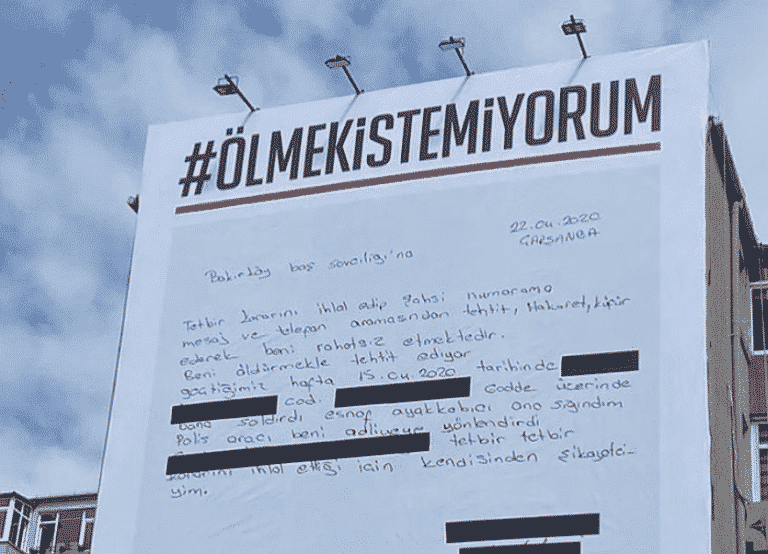 #ÖLMEKİSTEMİYORUM
22.04.2020
ÇARŞANBA
Bakırköy baş savcılığı'na
Tetbir kararını ihlal edip şahsi numarama
mesaj ve telefon aramasından tehtit, Hakaret, küfür
ederek beni rahatsız etmektedir.
Beni öldürmekle tehtit ediyor
geçtiğimiz hafta 15.04.2020 tarihinde
cad. Cadde üzerinde
bana saldırdı esnaf ayakkabıcı ona sığındım
Polis aracı beni adliyeye yönlendirdi
tetbir tetbir
kararını ihlal ettiği için kendisinden şikayetci-
yim.